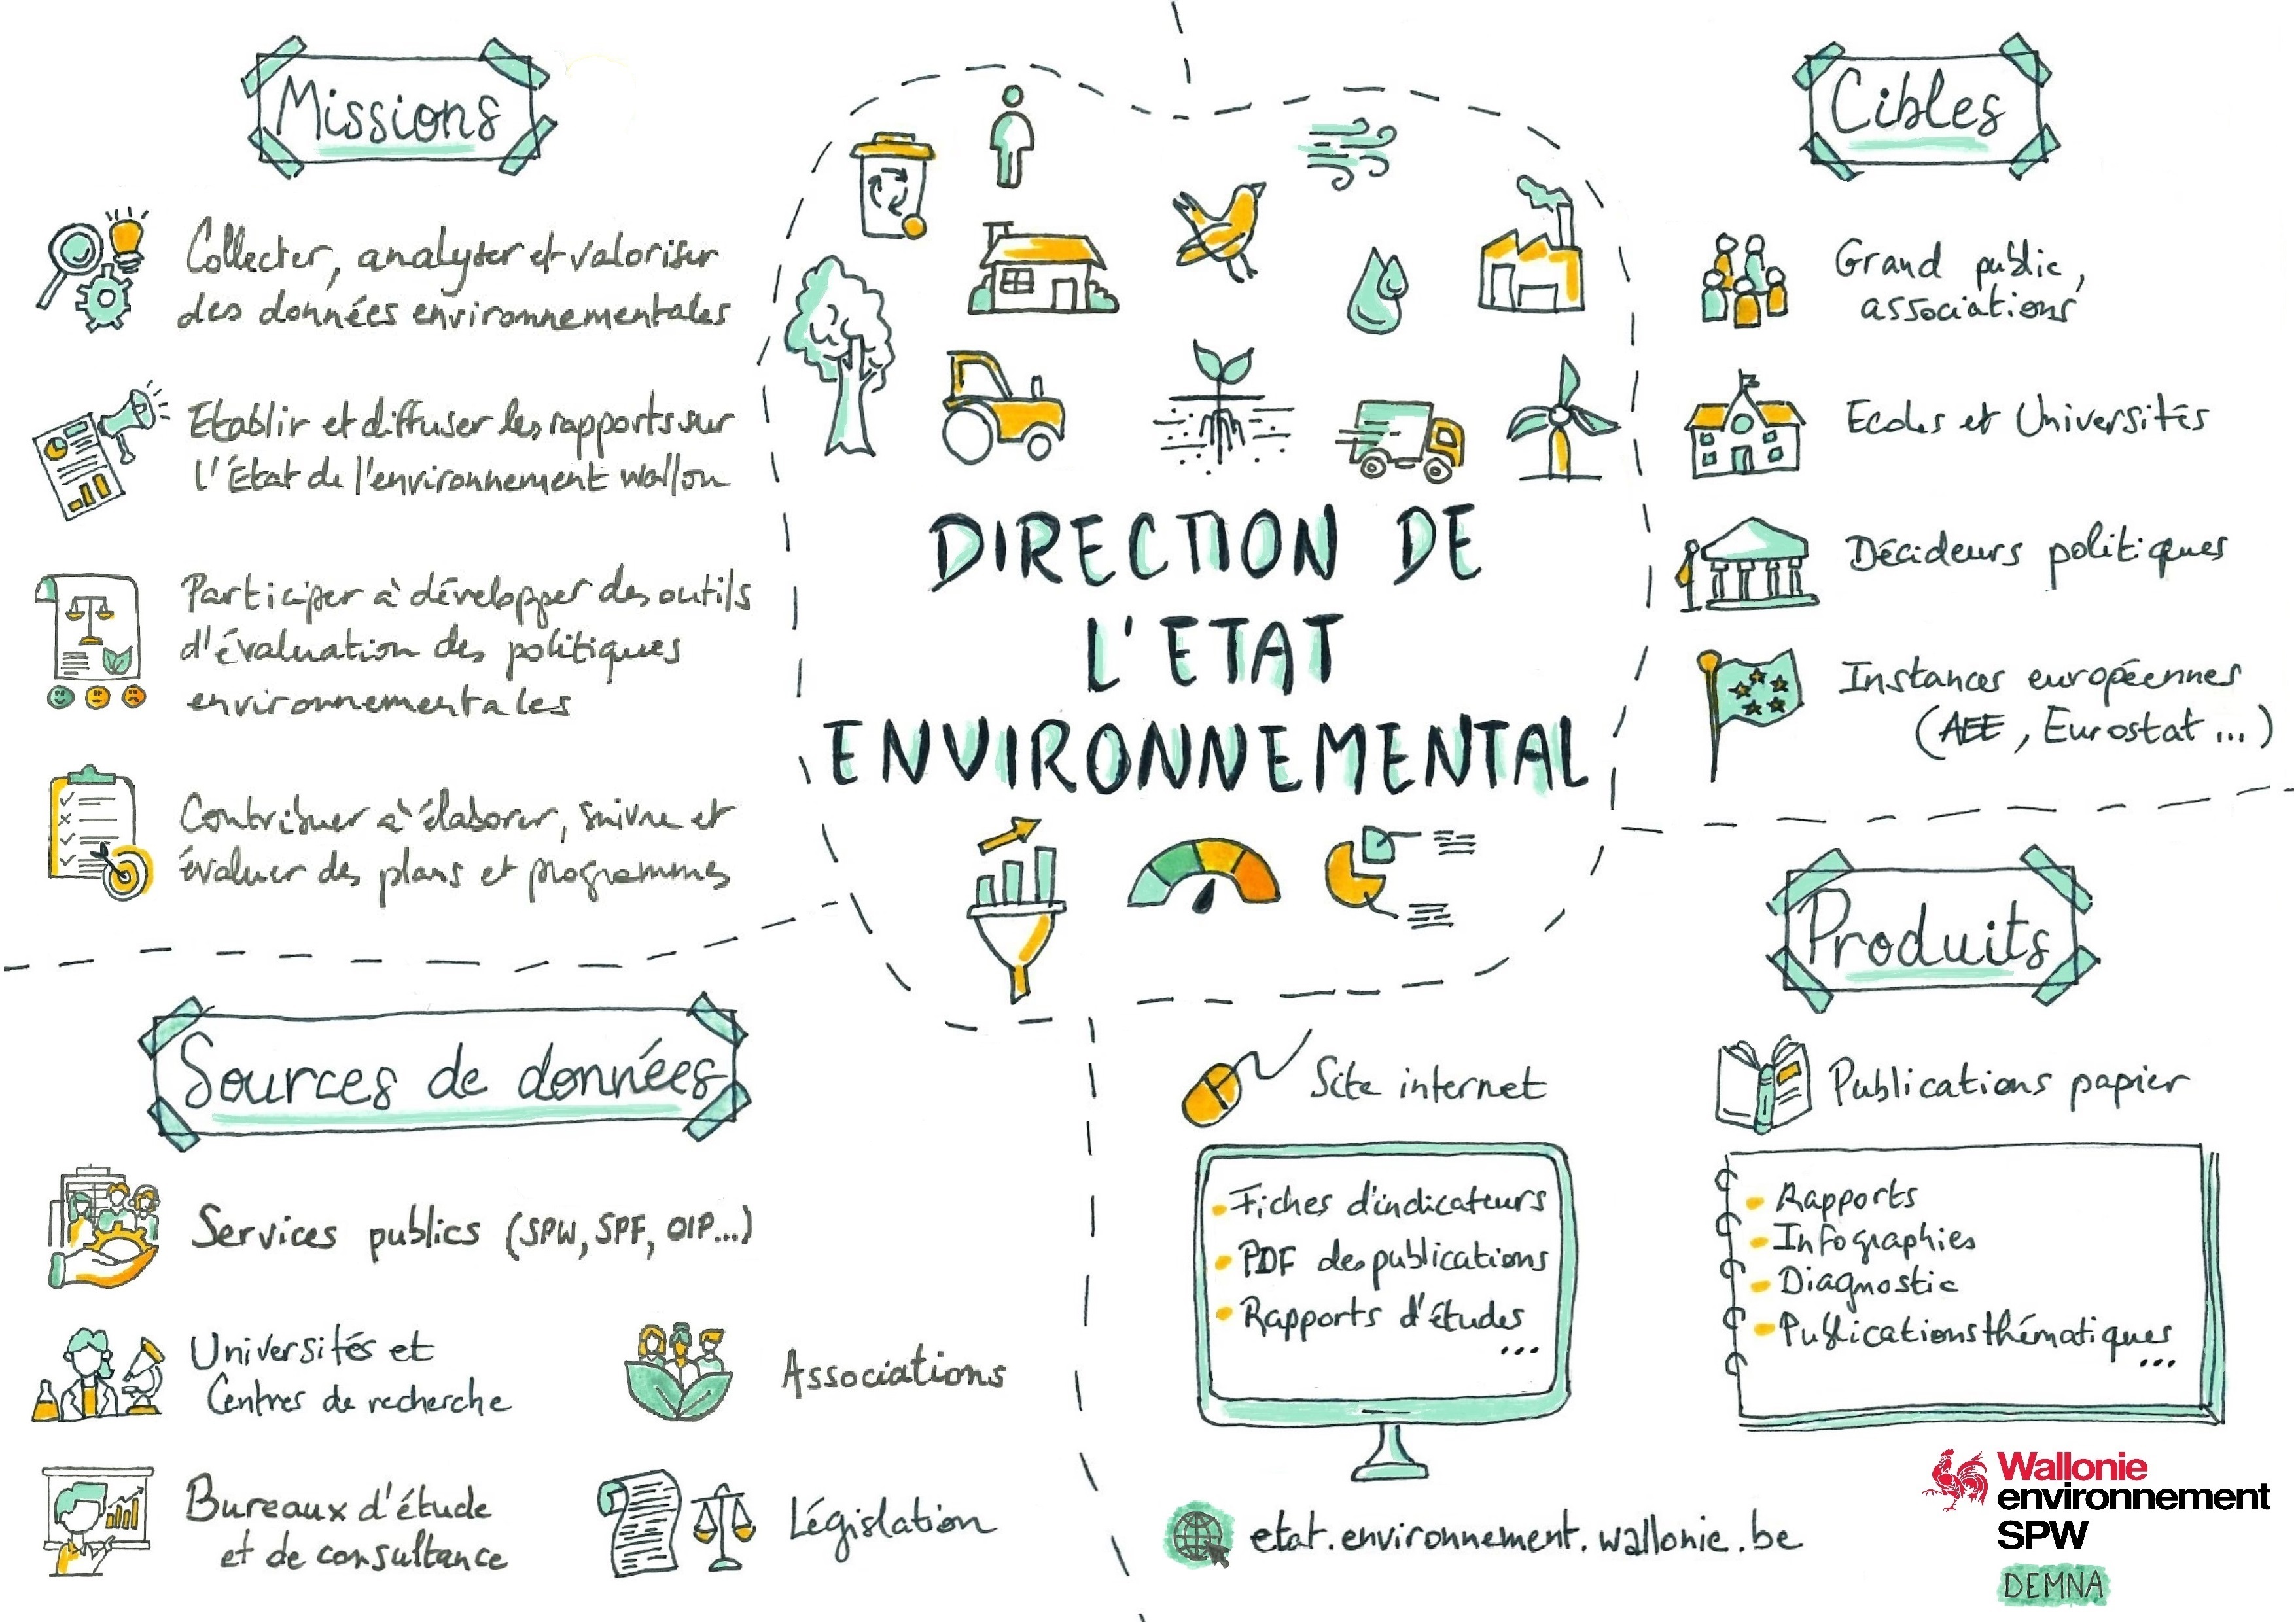 Missions
Collecter, analyser et valoriser
des données environnementales
Etablir et diffuser les rapports sur
l'Etat de l'environnement wallon
Participer à développer des outils
d'évaluation des politiques
environnementales
Contribuer à élaborer, suivre et
évaluer des plans et programmes
DIRECTION DE
L'ETAT
ENVIRONNEMENTAL
Cibles
Grand public,
associations
Ecoles et Universités
Décideurs politiques
Instances européennes
(AEE, Eurostat...)
Sources de données
Services publics (SPW, SPF, OIP...)
Universités et
Centres de recherche
Associations
Bureaux d'étude
et de consultance
Législation
Produits
Site internet
Fiches d'indicateurs
PDF des publications
Rapports d'études
...
Publications papier
Rapports
Infographies
Diagnostic
Publications thématiques
...
etat.environnement.wallonie.be
Wallonie
environnement
SPW
DEMNA